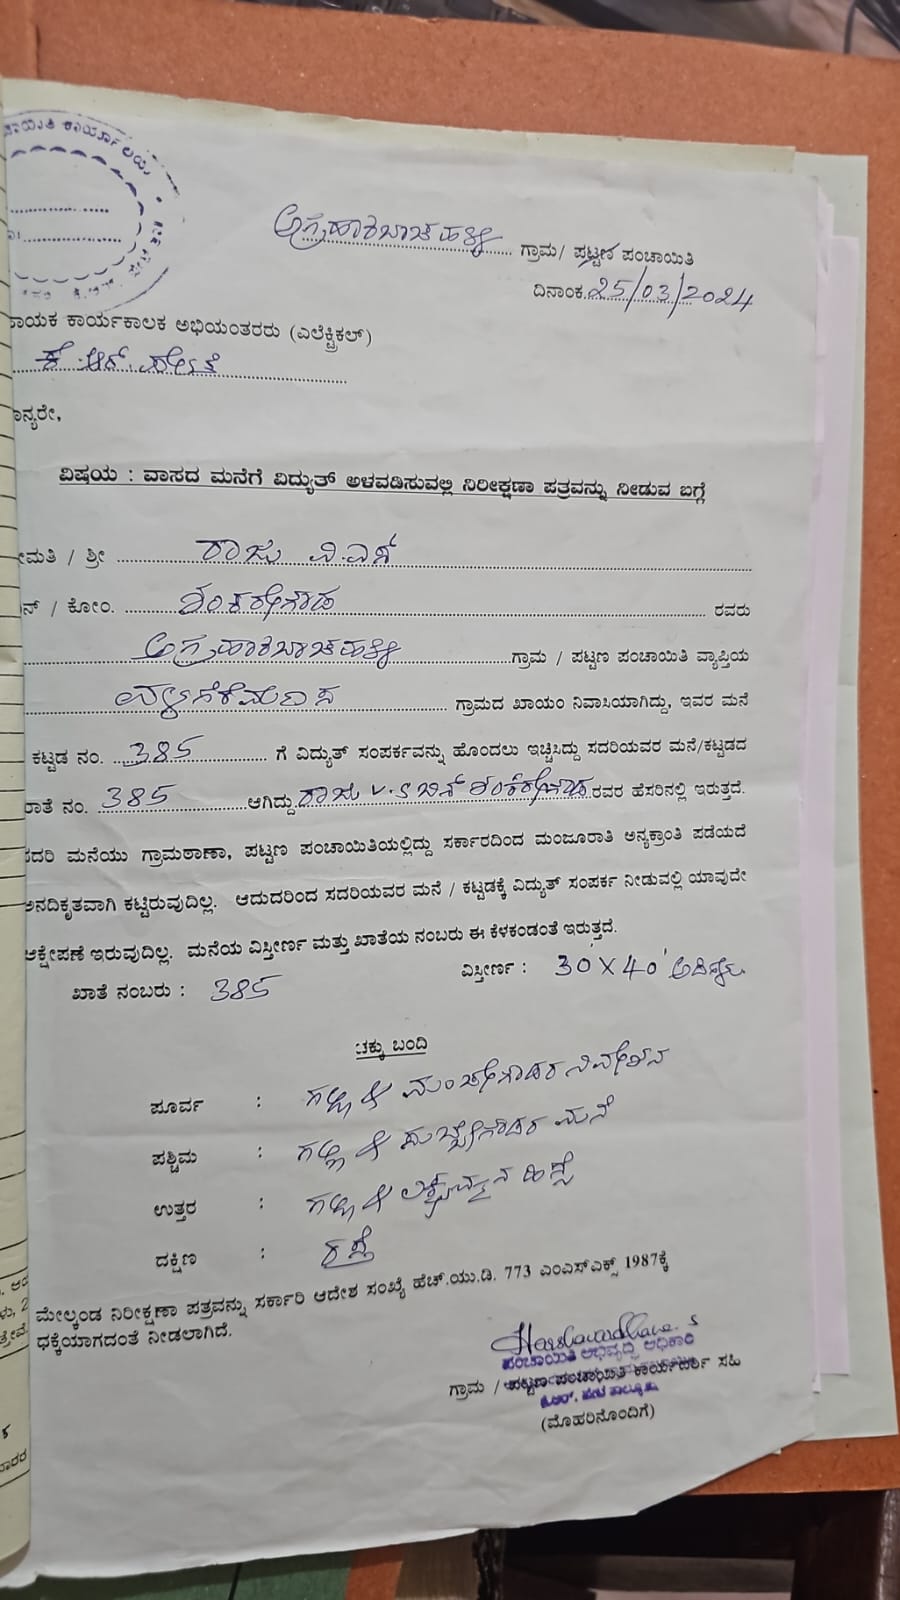 ಕಾರ್ಯಾಲಯ
ಅಗ್ರಹಾರಬಾಚಹಳ್ಳಿ ಗ್ರಾಮ/ ಪಟ್ಟಣ ಪಂಚಾಯಿತಿ
ದಿನಾಂಕ 25/03/2024
ಕಾರ್ಯಕಾಲಕ ಅಭಿಯಂತರರು (ಎಲೆಕ್ಟ್ರಿಕಲ್)
ಕೆ.ಆರ್.ಪೇಟೆ
ವಿಷಯ : ವಾಸದ ಮನೆಗೆ ವಿದ್ಯುತ್ ಅಳವಡಿಸುವಲ್ಲಿ ನಿರೀಕ್ಷಣಾ ಪತ್ರವನ್ನು ನೀಡುವ ಬಗ್ಗೆ
/ ಶ್ರೀ ರಾಜು ವಿ.ಎಸ್
/ ಕೋಂ. ಶಂಕರೇಗೌಡ ರವರು
ಅಗ್ರಹಾರಬಾಚಹಳ್ಳಿ ಗ್ರಾಮ / ಪಟ್ಟಣ ಪಂಚಾಯಿತಿ ವ್ಯಾಪ್ತಿಯ
ಗ್ರಾಮದ ಖಾಯಂ ನಿವಾಸಿಯಾಗಿದ್ದು, ಇವರ ಮನೆ
ಕಟ್ಟಡ ನಂ. 385 ಗೆ ವಿದ್ಯುತ್ ಸಂಪರ್ಕವನ್ನು ಹೊಂದಲು ಇಚ್ಚಿಸಿದ್ದು ಸದರಿಯವರ ಮನೆ/ಕಟ್ಟಡದ
ನಂ. 385 ಆಗಿದ್ದು ರಾಜು V.S ಬಿನ್ ಶಂಕರೇಗೌಡ ರವರ ಹೆಸರಿನಲ್ಲಿ ಇರುತ್ತದೆ.
ಮನೆಯು ಗ್ರಾಮಠಾಣಾ, ಪಟ್ಟಣ ಪಂಚಾಯಿತಿಯಲ್ಲಿದ್ದು ಸರ್ಕಾರದಿಂದ ಮಂಜೂರಾತಿ ಅನ್ಯಕ್ರಾಂತಿ ಪಡೆಯದೆ
ಅನದಿಕೃತವಾಗಿ ಕಟ್ಟಿರುವುದಿಲ್ಲ. ಆದುದರಿಂದ ಸದರಿಯವರ ಮನೆ / ಕಟ್ಟಡಕ್ಕೆ ವಿದ್ಯುತ್ ಸಂಪರ್ಕ ನೀಡುವಲ್ಲಿ ಯಾವುದೇ
ಆಕ್ಷೇಪಣೆ ಇರುವುದಿಲ್ಲ. ಮನೆಯ ವಿಸ್ತೀರ್ಣ ಮತ್ತು ಖಾತೆಯ ನಂಬರು ಈ ಕೆಳಕಂಡಂತೆ ಇರುತ್ತದೆ.
ಖಾತೆ ನಂಬರು : 385 ವಿಸ್ತೀರ್ಣ : 30 X 40' ಅಡಿಗಳು
ಚಕ್ಕು ಬಂದಿ
ಪೂರ್ವ : ಗಲ್ಲಿ & ಮಂಚೇಗೌಡರ ನಿವೇಶನ
ಪಶ್ಚಿಮ : ಗಲ್ಲಿ & ಮನೆ
ಉತ್ತರ : ಗಲ್ಲಿ &
ದಕ್ಷಿಣ : ರಸ್ತೆ
ಮೇಲ್ಕಂಡ ನಿರೀಕ್ಷಣಾ ಪತ್ರವನ್ನು ಸರ್ಕಾರಿ ಆದೇಶ ಸಂಖ್ಯೆ ಹೆಚ್.ಯು.ಡಿ. 773 ಎಂಎಸ್ಎಕ್ಸ್ 1987ಕ್ಕೆ
ಧಕ್ಕೆಯಾಗದಂತೆ ನೀಡಲಾಗಿದೆ.
ಪಂಚಾಯಿತಿ ಅಭಿವೃದ್ಧಿ ಅಧಿಕಾರಿ
ಗ್ರಾಮ / ಪಟ್ಟಣ ಪಂಚಾಯಿತಿ ಕಾರ್ಯದರ್ಶಿ ಸಹಿ
ಕೆ.ಆರ್. ಪೇಟೆ ತಾಲ್ಲೂಕು
(ಮೊಹರಿನೊಂದಿಗೆ)